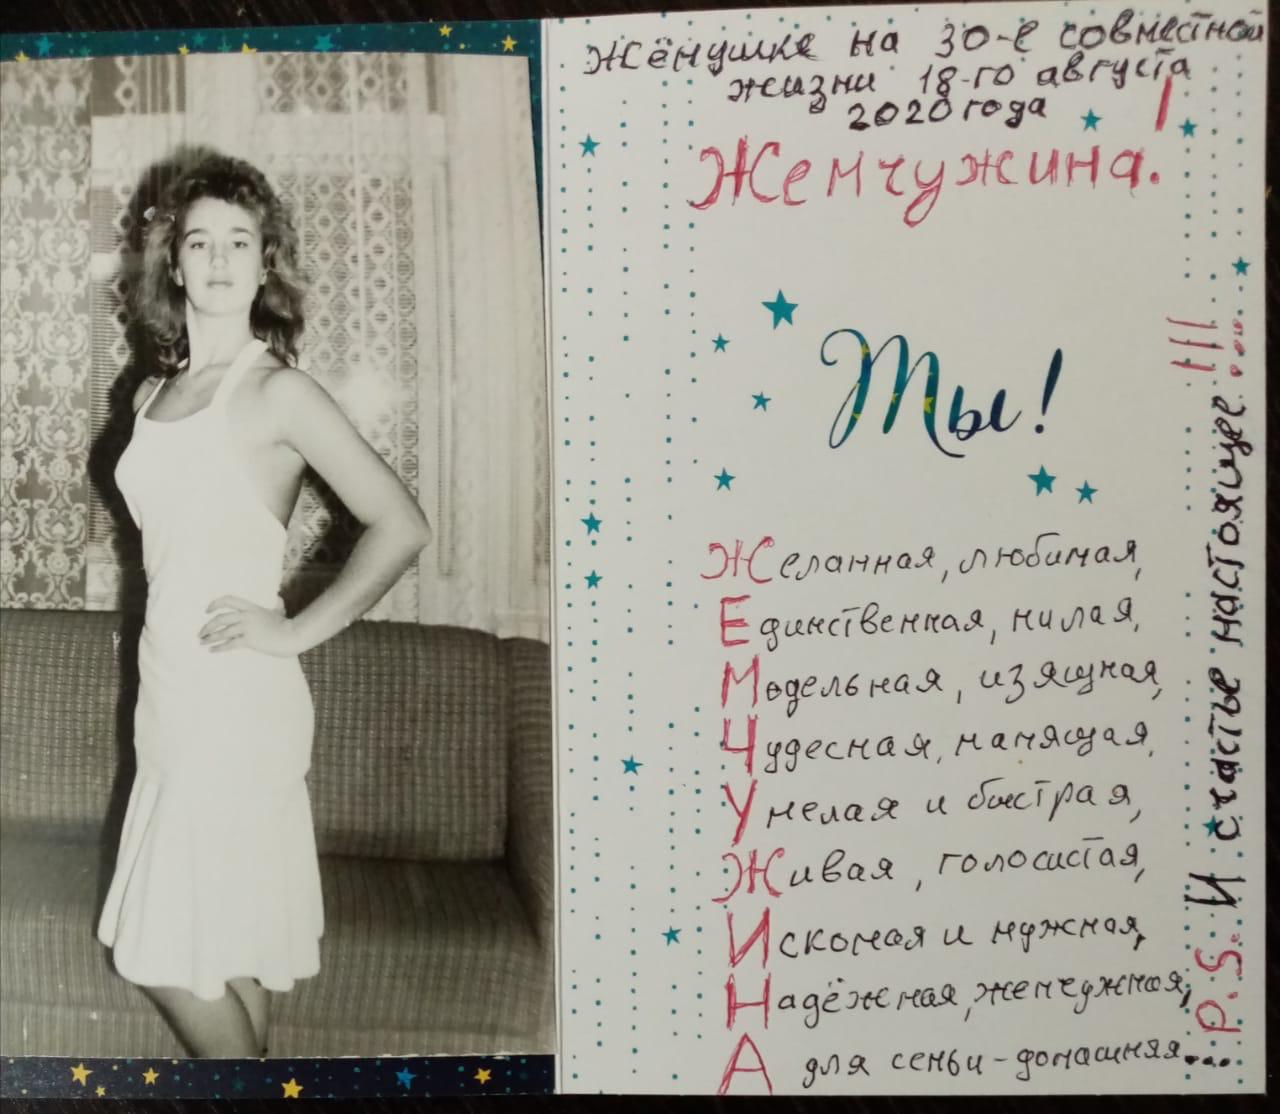 Жёнушке на 30-е совместной
жизни 18-го августа
2020 года !
Жемчужина.
Ты!
Желанная, любимая,
Единственная, милая,
Модельная, изящная,
Чудесная, манящая,
Умелая и быстрая,
Живая, голосистая,
Искомая и нужная,
Надёжная, жемчужная,
А для семьи - домашняя...
P.S. И счастье настоящее!!!...